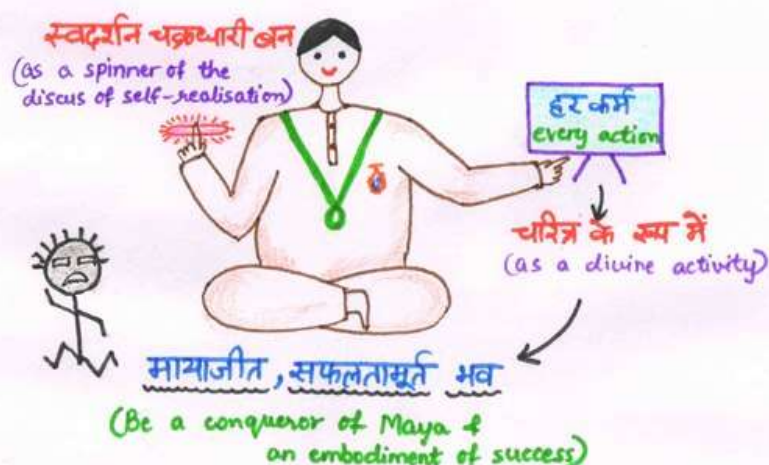 स्वदर्शन चक्रधारी बन
(as a spinner of the
discus of self-realisation)
हर कर्म
every action
चरित्र के रूप में
(as a divine activity)
मायाजीत, सफलतामूर्त भव
(Be a conqueror of Maya &
an embodiment of success)